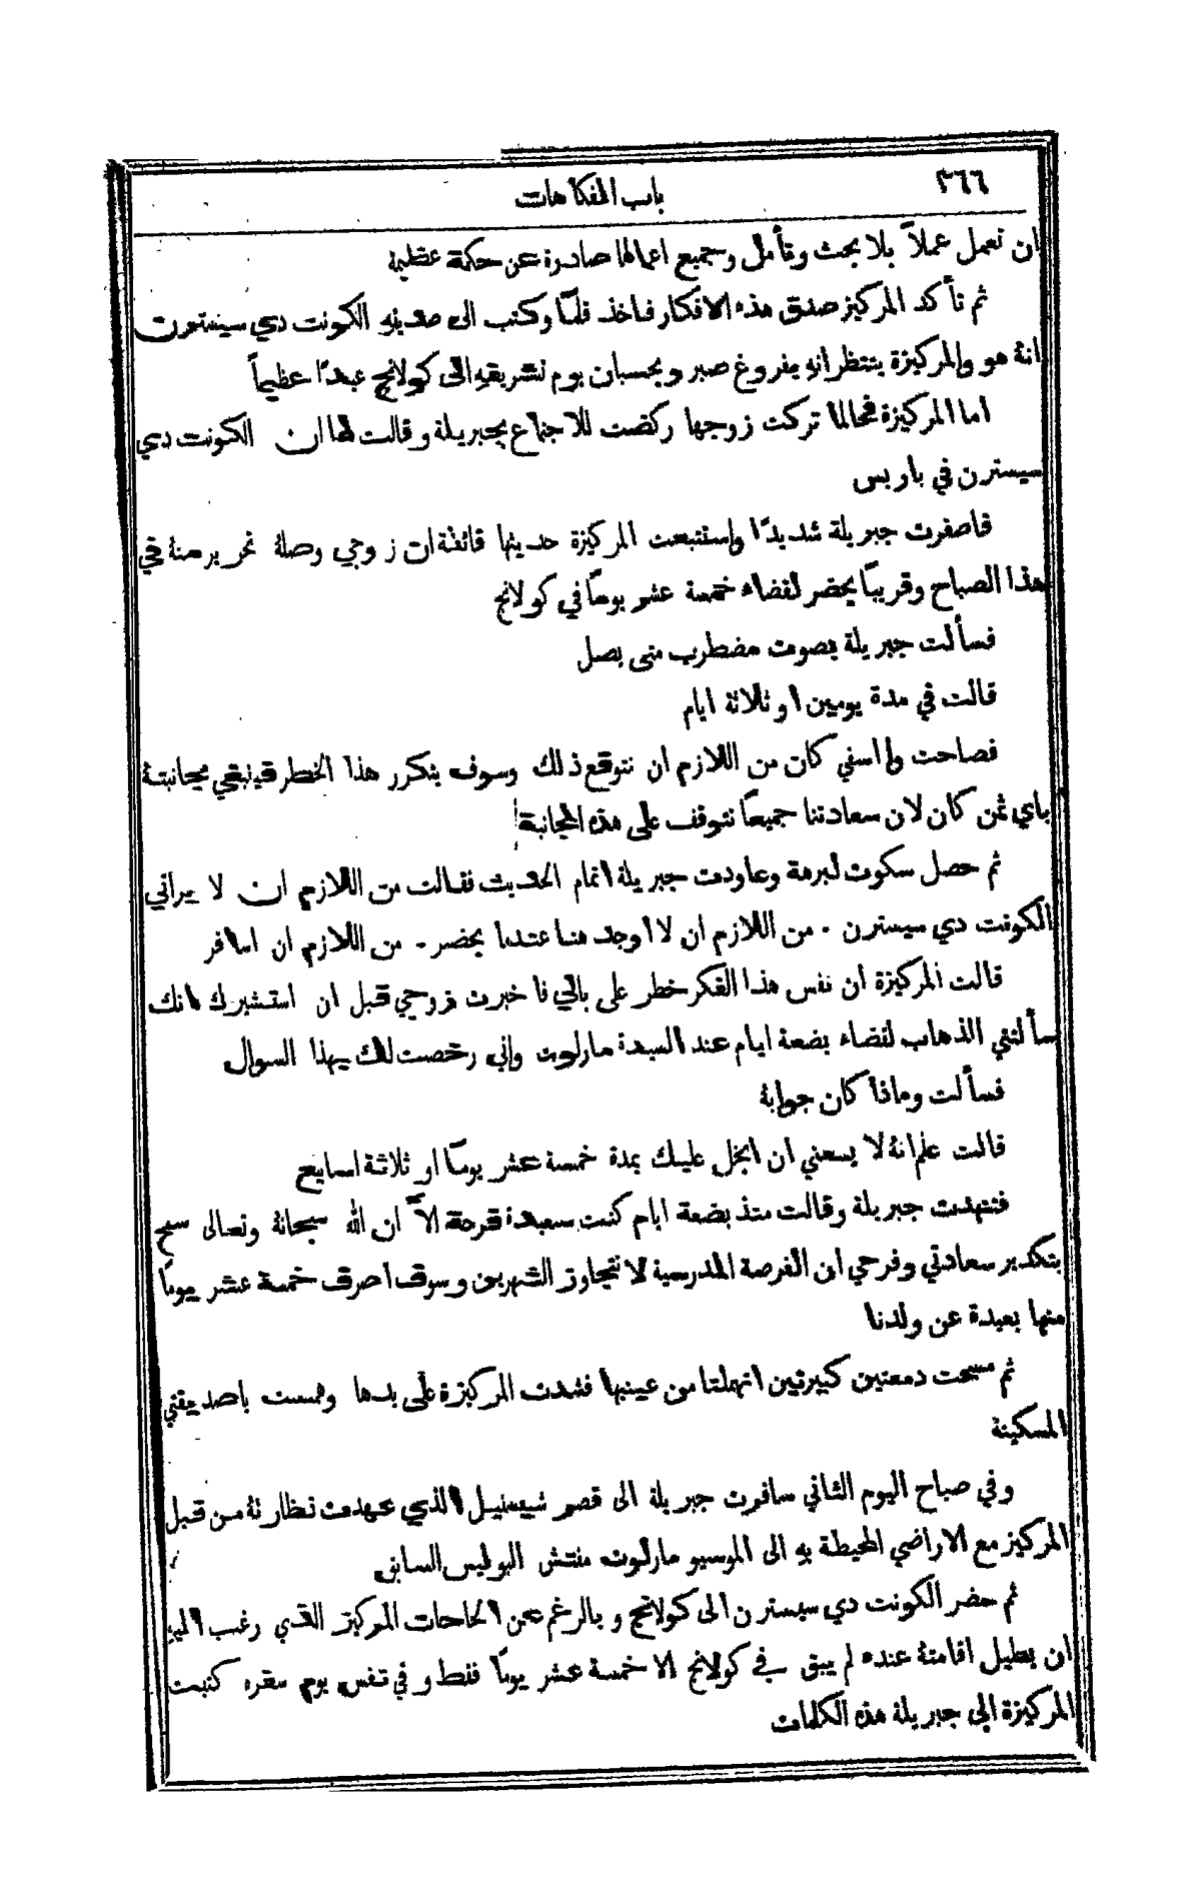 ٣٦٦
باب الفكاهات
ان تعمل عملاً بلا بحث وتأمل وجميع اعمالها صادرة عن حكمة عظيمة
ثم تأكد المركيز صدق هذه الافكار فاخذ قلمًا وكتب الى صديقه الكونت دي سيسترن
انهُ هو والمركيزة ينتظرانه بفروغ صبر ويحسبان يوم تشريفه الى كولانج عيدًا عظيماً
اما المركيزة فحالما تركت زوجها ركضت للاجتماع بجبريلة وقالت لها ان الكونت دي
سيسترن في باريس
فاصفرت جبريلة شديدًا واستتبعت المركيزة حديثها قائلة ان زوجي وصلهُ تحرير منهُ في
هذا الصباح وقريبًا يحضر لقضاء خمسة عشر يومًا في كولانج
فسألت جبريلة بصوت مضطرب متى يصل
قالت في مدة يومين او ثلاثة ايام
فصاحت وا اسفي كان من اللازم ان نتوقع ذلك وسوف يتكرر هذا الخطر فينبغي مجانبتهُ
باي ثمن كان لان سعادتنا جميعًا نتوقف على هذه المجانبة
ثم حصل سكوت لبرهة وعاودت جبريلة اتمام الحديث فقالت من اللازم ان لا يراني
الكونت دي سيسترن . من اللازم ان لا اوجد هنا عندما يحضر . من اللازم ان اسافر
قالت المركيزة ان نفس هذا الفكر خطر على بالي فا خبرت زوجي قبل ان استشيرك انك
سألتني الذهاب لقضاء بضعة ايام عند السيدة مارلوت واني رخصت لك بهذا السوال
فسألت وماذا كان جوابهُ
قالت علم انهُ لا يسعني ان ابخل عليك بمدة خمسة عشر يومًا او ثلاثة اسابيع
فتنهدت جبريلة وقالت منذ بضعة ايام كنت سعيدة فرحة الاَّ ان الله سبحانهُ وتعالى سمح
بتكدير سعادتي وفرحي ان الفرصة المدرسية لا تتجاوز الشهرين وسوف اصرف خمسة عشر يومًا
منها بعيدة عن ولدنا
ثم مسحت دمعتين كبيرتين انهملتا من عينيها فشدت المركيزة على يدها وهمست يا صديقتي
المسكينة
وفي صباح اليوم الثاني سافرت جبريلة الى قصر الذي عهدت نظارتهُ من قبل
المركيز مع الاراضي المحيطة به الى الموسيو مارلوت مفتش البوليس السابق
ثم حضر الكونت دي سيسترن الى كولانج وبالرغم عن الحاحات المركيز الذي رغب اليه
ان يطيل اقامتهُ عنده لم يبق في كولانج الا خمسة عشر يومًا فقط وفي نفس يوم سفره كتبت
المركيزة الى جبريلة هذه الكلمات